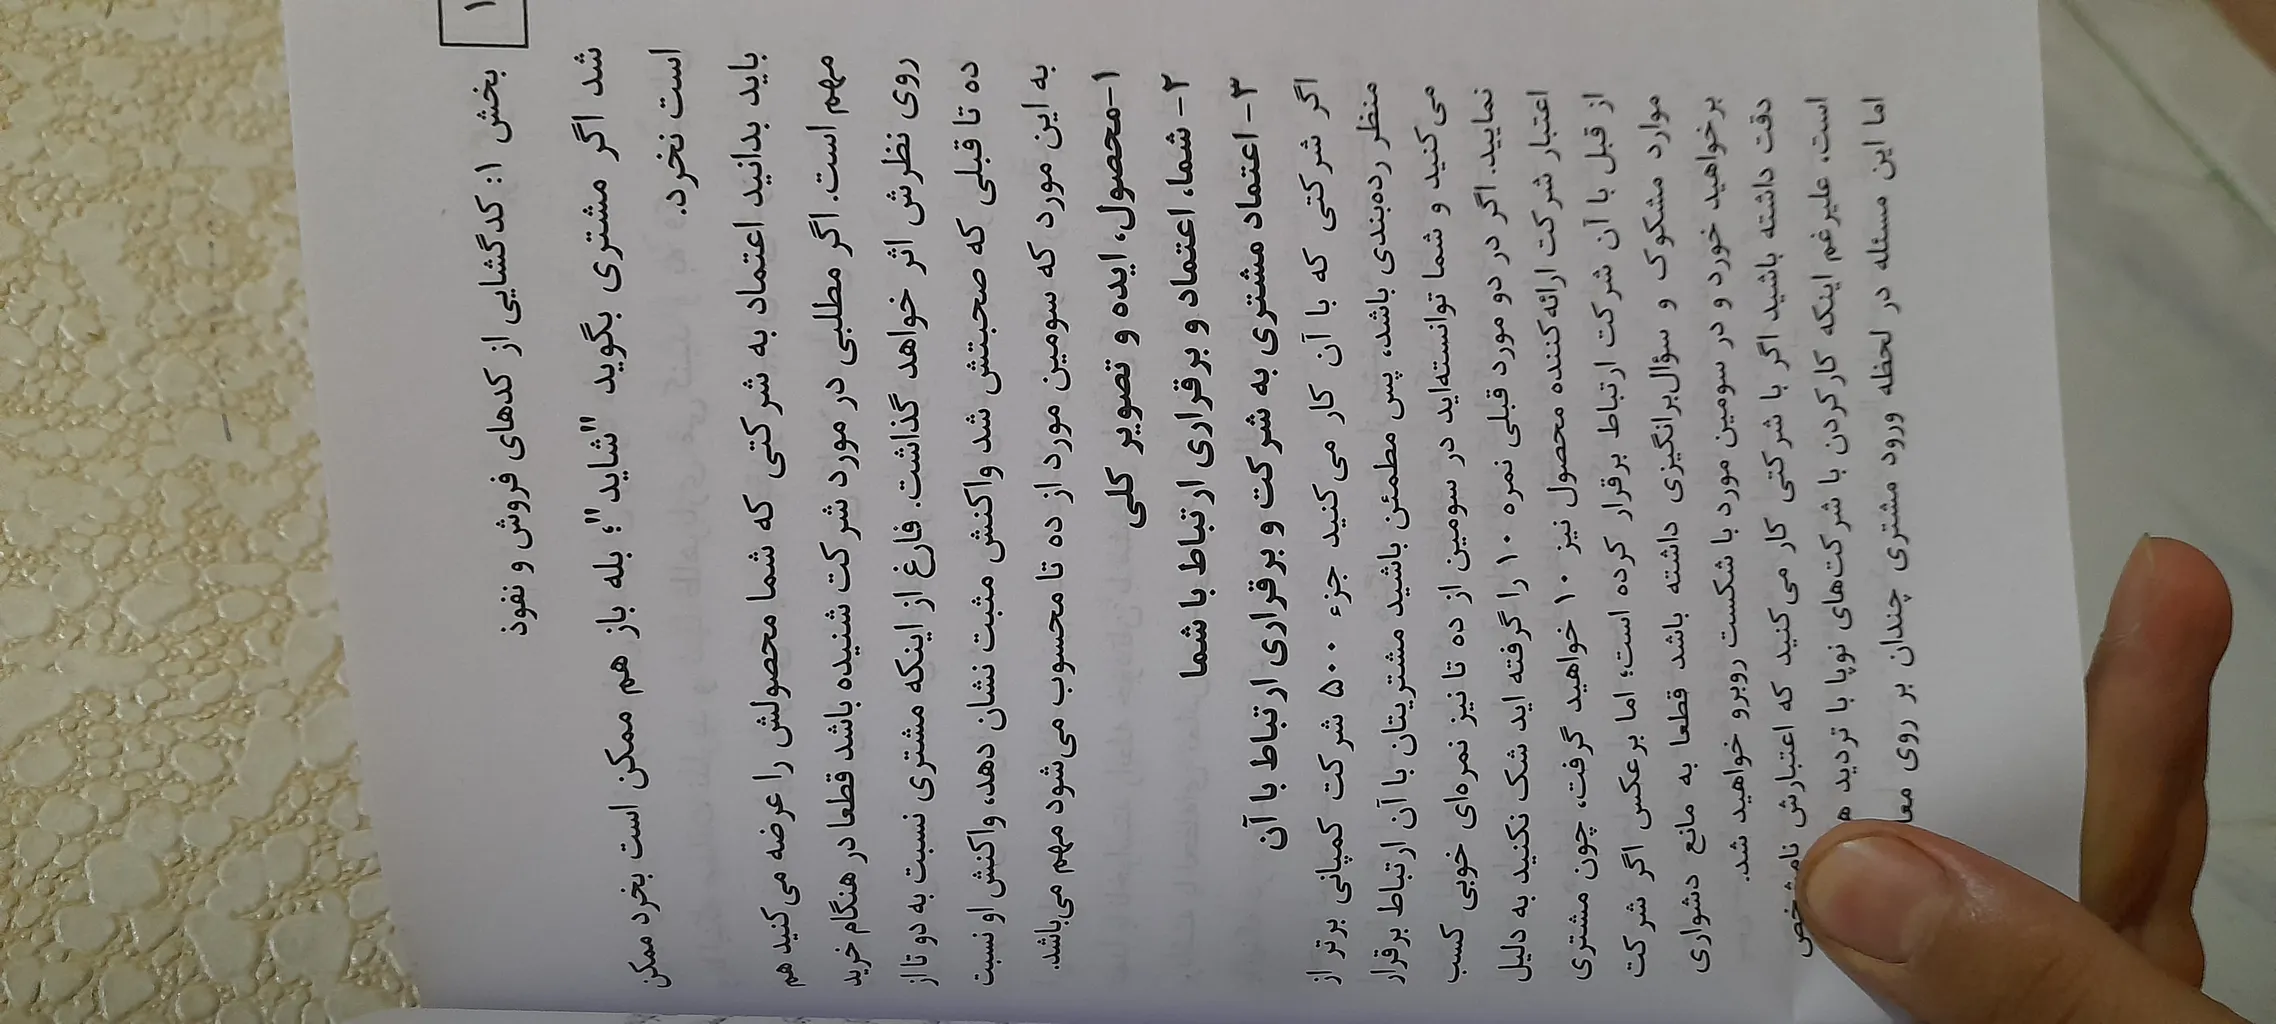 ۱
بخش ۱: کدگشایی از کدهای فروش و نفوذ
شد اگر مشتری بگوید "شاید"؛ بله باز هم ممکن است بخرد ممکن
است نخرد.
باید بدانید اعتماد به شرکتی که شما محصولش را عرضه می‌کنید هم
مهم است. اگر مطلبی در مورد شرکت شنیده باشد قطعا در هنگام خرید
روی نظرش اثر خواهد گذاشت. فارغ از اینکه مشتری نسبت به دو تا از
ده تا قبلی که صحبتش شد واکنش مثبت نشان دهد، واکنش او نسبت
به این مورد که سومین مورد از ده تا محسوب می‌شود مهم می‌باشد.
۱-محصول، ایده و تصویر کلی
۲- شما، اعتماد و برقراری ارتباط با شما
۳- اعتماد مشتری به شرکت و برقراری ارتباط با آن
اگر شرکتی که با آن کار می‌کنید جزء ۵۰۰ شرکت کمپانی برتر از
منظر رده‌بندی باشد، پس مطمئن باشید مشتریتان با آن ارتباط برقرار
می‌کنید و شما توانسته‌اید در سومین از ده تا نیز نمره‌ای خوبی کسب
نمایید. اگر در دو مورد قبلی نمره ۱۰ را گرفته اید شک نکنید به دلیل
اعتبار شرکت ارائه‌کننده محصول نیز ۱۰ خواهید گرفت، چون مشتری
از قبل با آن شرکت ارتباط برقرار کرده است؛ اما برعکس اگر شرکت
موارد مشکوک و سؤال‌برانگیزی داشته باشد قطعا به مانع دشواری
برخواهید خورد و در سومین مورد با شکست روبرو خواهید شد.
دقت داشته باشید اگر با شرکتی کار می‌کنید که اعتبارش نامشخص
است، علیرغم اینکه کارکردن با شرکت‌های نوپا با تردید
اما این مسئله در لحظه ورود مشتری چندان بر روی